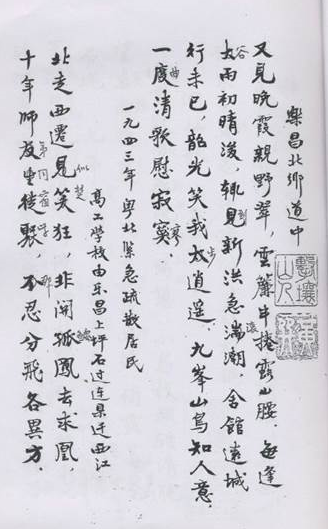 樂昌北鄉道中
又見晚霞親野翠，雲簾半捲露山腰，每逢
谷雨初晴後，輒見新洪急湍潮，舍館遠城
行未已，韶光笑我太逍遥，九峯山鳥知人意，
一度清歌慰寂寞，
一九四三年粵北紧急疏散居民
高工学校由乐昌上坪石过连县迁西江
北走西遷見笑狂，非関孤鳳去求凰，
十年師友生徒聚，不忍分飛各異方，